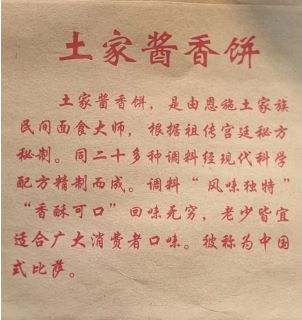 土家酱香饼
土家酱香饼，是由恩施土家族
民间面食大师，根据祖传宫廷秘方
秘制。同二十多种调料经现代科学
配方精制而成。调料“风味独特”
“香酥可口”回味无穷，老少皆宜
适合广大消费者口味。被称为中国
式比萨。